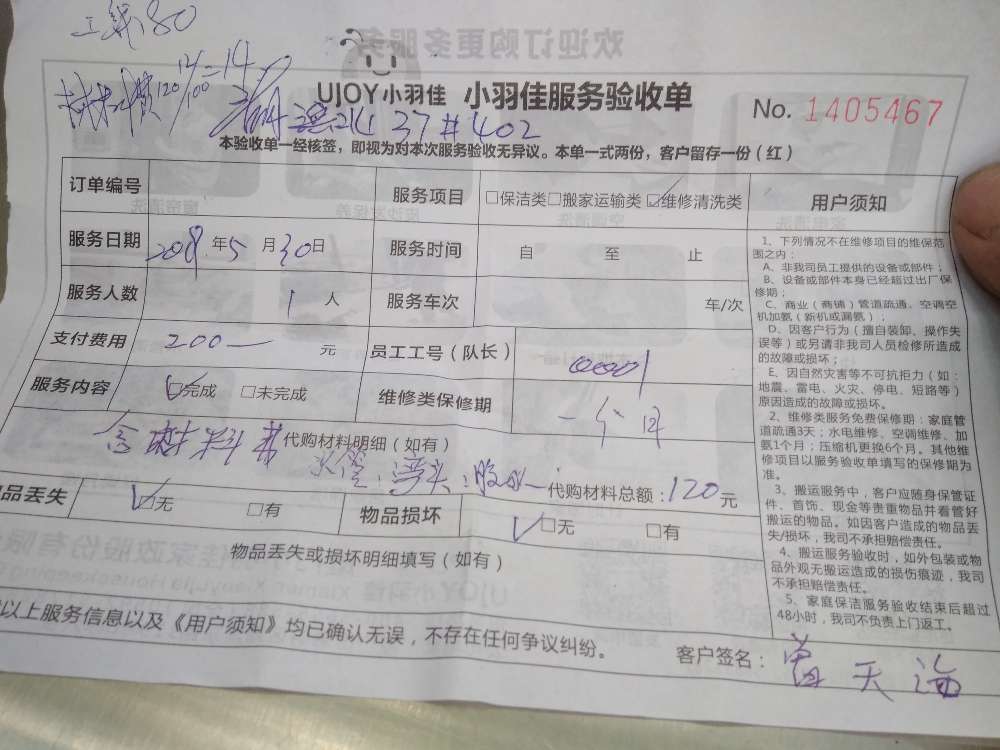 工费180
材料费120
UJOY小羽佳 小羽佳服务验收单
No. 1405467
37#402
本验收单一经核签，即视为对本次服务验收无异议。本单一式两份，客户留存一份（红）
订单编号 服务项目 □保洁类□搬家运输类☑维修清洗类
服务日期 2018年5月30日 服务时间 自 至 止
服务人数 1人 服务车次 车/次
支付费用 200一元 员工工号（队长） 00001
服务内容 ☑完成 □未完成 维修类保修期 一个月
含材料费 代购材料明细（如有）
水管，弯头，胶水一 代购材料总额：120元
品丢失 ☑无 □有 物品损坏 ☑无 □有
物品丢失或损坏明细填写（如有）
以上服务信息以及《用户须知》均已确认无误，不存在任何争议纠纷。
客户签名： 天海
用户须知
1、下列情况不在维修项目的维保范
围之内：
A、非我司员工提供的设备或部件；
B、设备或部件本身已经超过出厂保
修期；
C、商业（商铺）管道疏通、空调空
机加氨（新机或漏氨）；
D、因客户行为（擅自装卸、操作失
误等）或另请非我司人员检修所造成
的故障或损坏；
E、因自然灾害等不可抗拒力（如：
地震、雷电、火灾、停电、短路等）
原因造成的故障或损坏。
2、维修类服务免费保修期：家庭管
道疏通3天；水电维修、空调维修、加
氨1个月；压缩机更换6个月。其他维
修项目以服务验收单填写的保修期为
准。
3、搬运服务中，客户应随身保管证
件、首饰、现金等贵重物品并看管好
搬运的物品。如因客户造成的物品丢
失/损坏，我司不承担赔偿责任。
4、搬运服务验收时，如外包装或物
品外观无搬运造成的损伤痕迹，我司
不承担赔偿责任。
5、家庭保洁服务验收结束后超过
48小时，我司不负责上门返工。